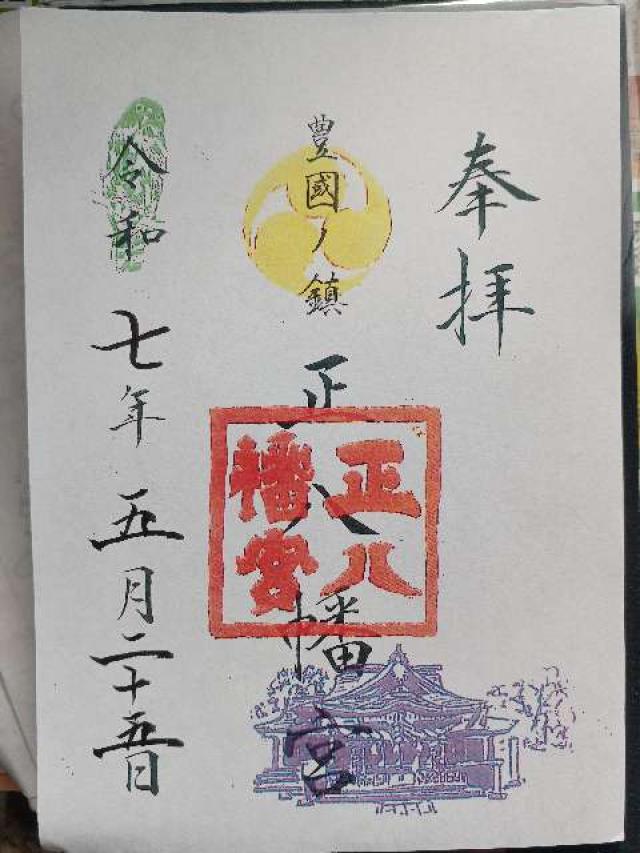 奉拝
豊國ノ鎮
正八幡宮
正八
幡宮
令和七年五月二十五日